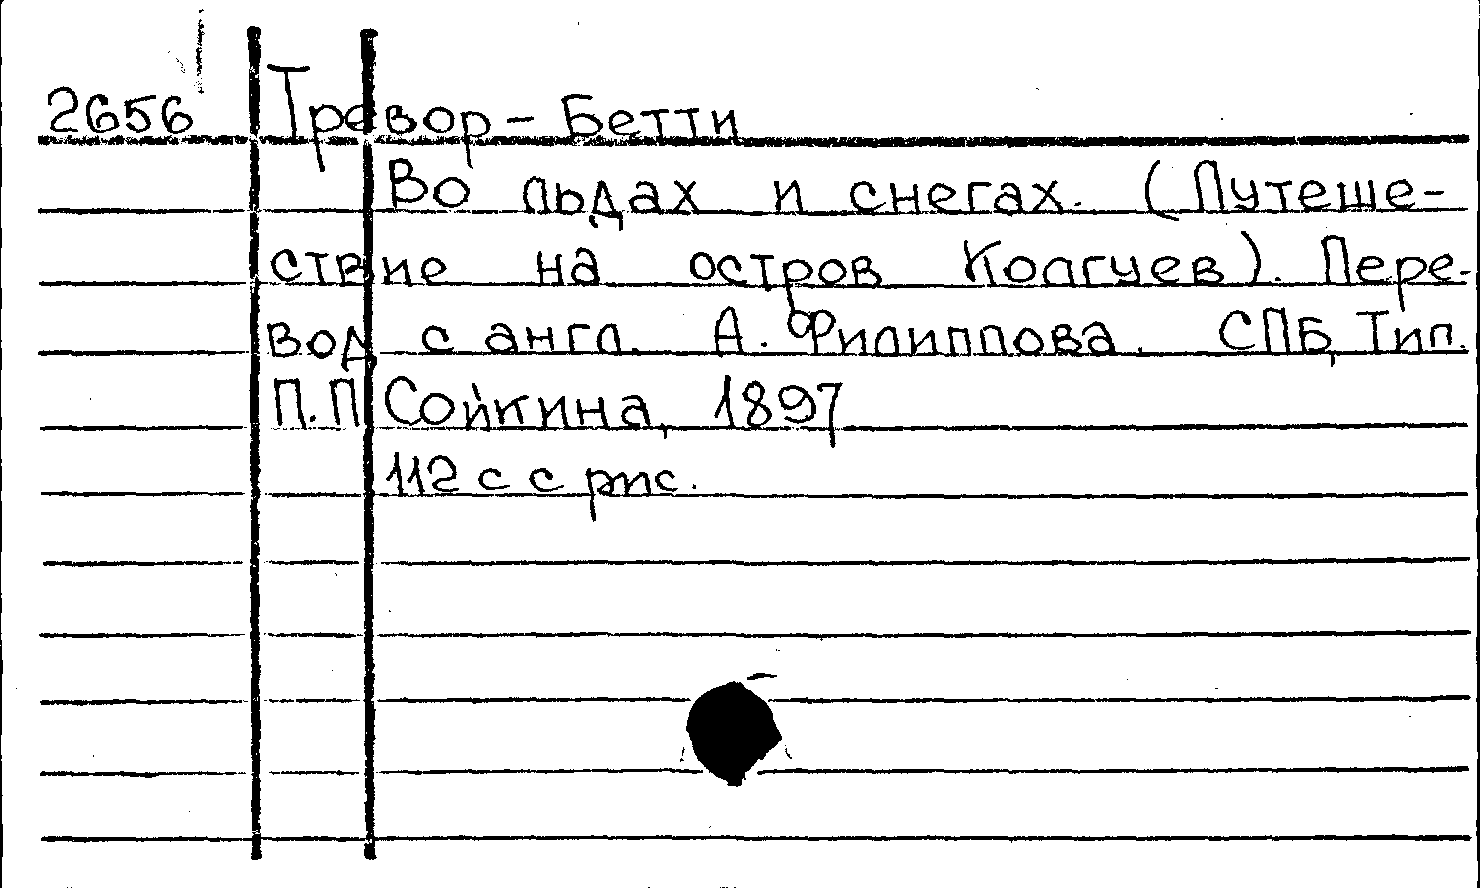 2656 Тревор-Бетти
Во льдах и снегах. (Путеше-
ствие на остров Колгуев). Пере-
вод с англ. А. Филиппова. СПБ, Тип.
П.П. Сойкина, 1897
112 с с рис.